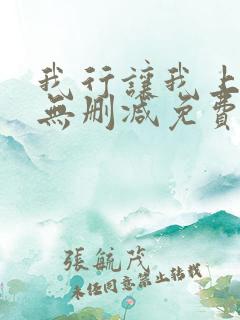 我行讓我上
無刪減免費
張毓茂
未经同意禁止转载